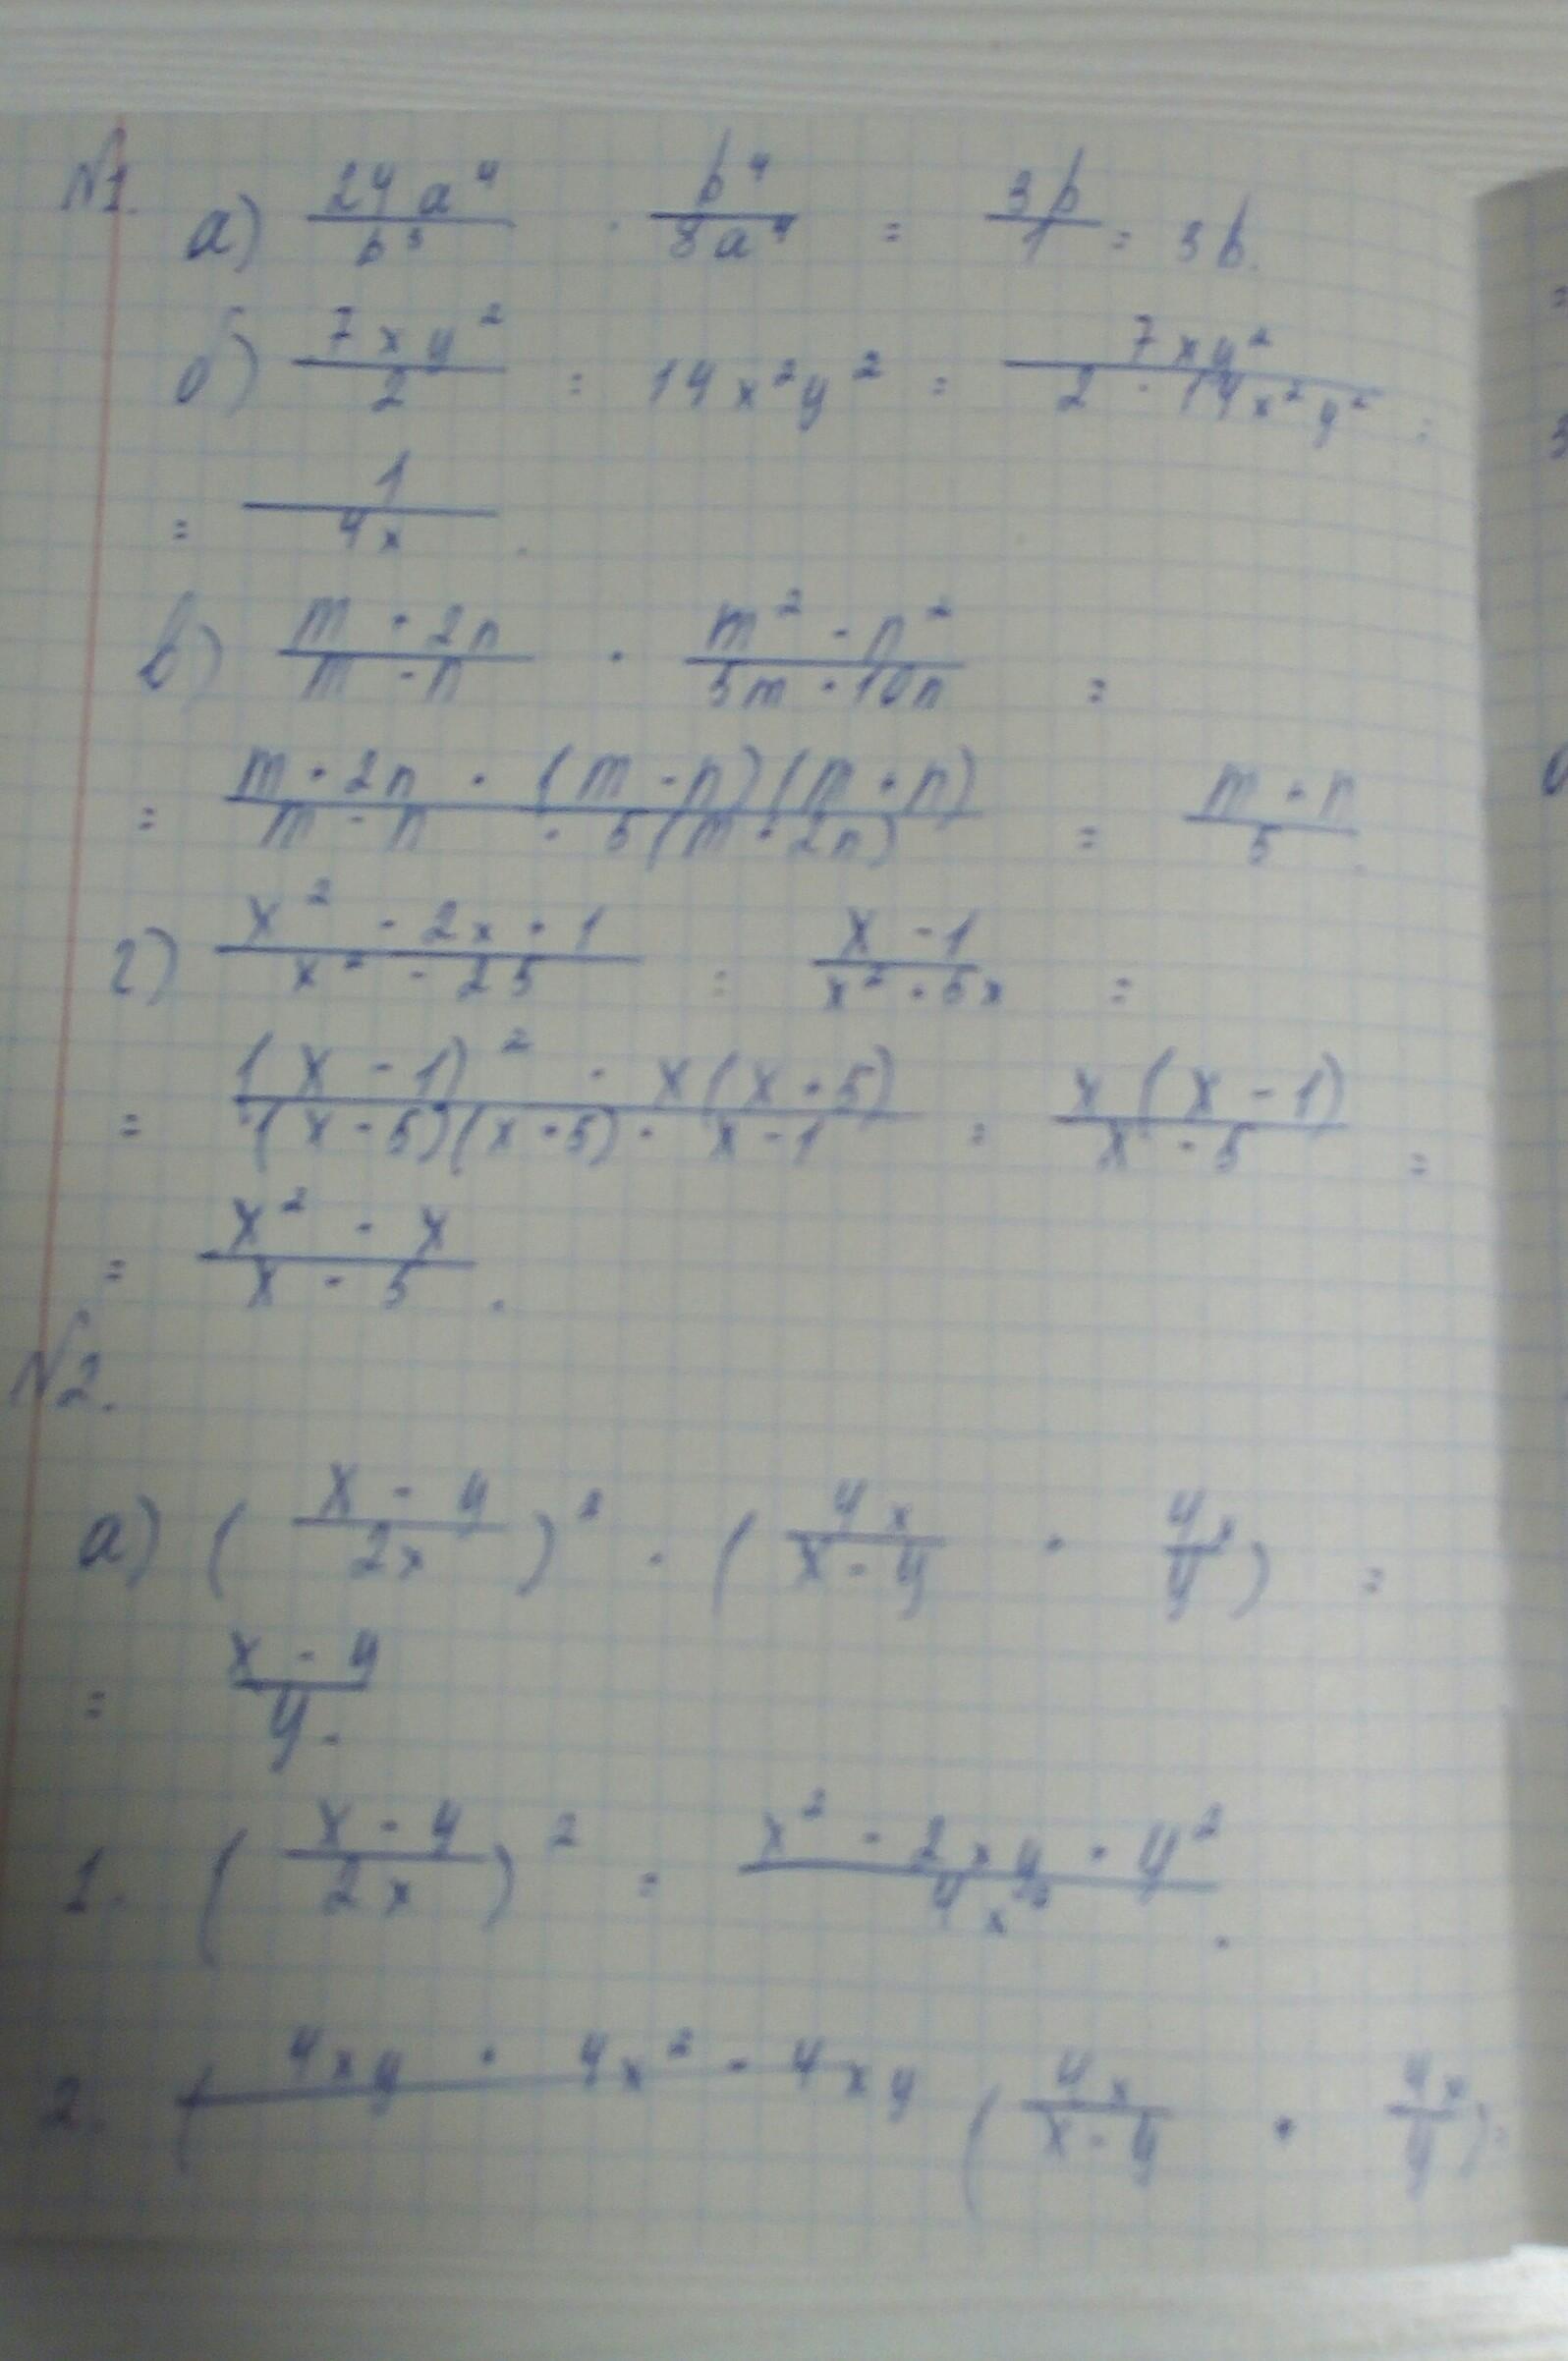 №1. а) 24a⁴/b³ · b⁴/8a⁴ = 3b/1 = 3b.
б) 7xy²/2 : 14x²y² = 7xy²/(2 · 14x²y²) =
= 1/4x.
в) (m + 2n)/(m - n) · (m² - n²)/(5m + 10n) =
= (m + 2n · (m - n)(m + n))/(m - n · 5(m + 2n)) = (m + n)/5.
г) (x² - 2x + 1)/(x² - 25) : (x - 1)/(x² + 5x) =
= ((x - 1)² · x(x + 5))/((x - 5)(x + 5) · x - 1) = x(x - 1)/(x - 5) =
= (x² - x)/(x - 5).
№2.
а) ((x - y)/2x)² · (4x/(x - y) + 4x/y) =
= (x - y)/y.
1. ((x - y)/2x)² = (x² - 2xy + y²)/4x².
2. (4xy + 4x² - 4xy (4x/(x - y) + 4x/y) =